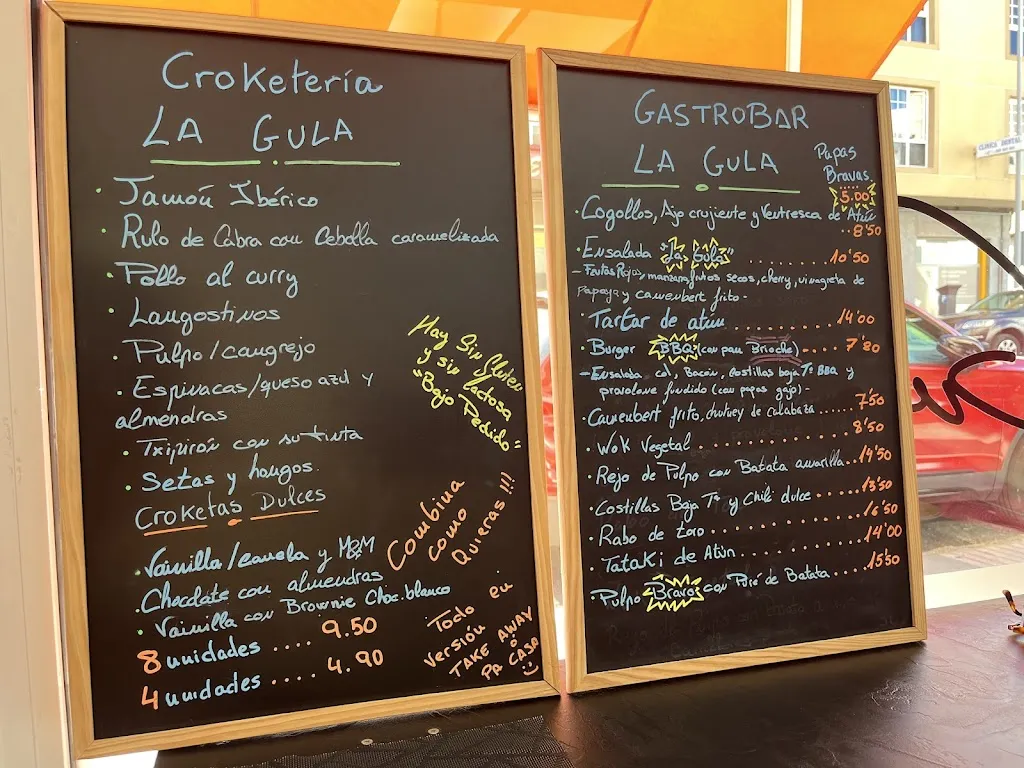 Croketería
LA GULA
Jamón Ibérico
Rulo de Cabra con Cebolla caramelizada
Pollo al curry
Langostinos
Pulpo/cangrejo
Espinacas/queso azul y
almendras
Txipirón con su tinta
Setas y hongos.
Croketas Dulces
Vainilla/canela y M&M
Chocolate con almendras
Vainilla con Brownie Choc.blanco
8 unidades .... 9.50
4 unidades .... 4.90
Hay Sin Gluten
y sin lactosa
"Bajo Pedido"
Combina
como
Quieras!!!
Todo en
Versión
TAKE AWAY
ó
PA CASA
GASTROBAR
LA GULA
Papas
Bravas
5.00
Cogollos, Ajo crujiente y Ventresca de Atún
..8'50
Ensalada "la Gula" ........ 10'50
- Frutas Rojas, manzana, frutos secos, cherry, vinagreta de
Papaya y camembert frito -
Tartar de atún ............ 14'00
Burger BBQ (con pan Brioche) .... 7'80
- Ensalada col, Bacón, Costillas baja Tª BBQ y
provolone fundido (con papas gajo) -
Camembert frito, chutney de calabaza ...... 7'50
Wok Vegetal .............. 8'50
Rejo de Pulpo con Batata amarilla... 14'50
Costillas Baja Tª y Chili dulce ...... 13'50
Rabo de toro .............. 16'50
Tataki de Atún ............ 14'00
Pulpo Bravo con Puré de Batata ..... 15'50
CLINICA DENTAL